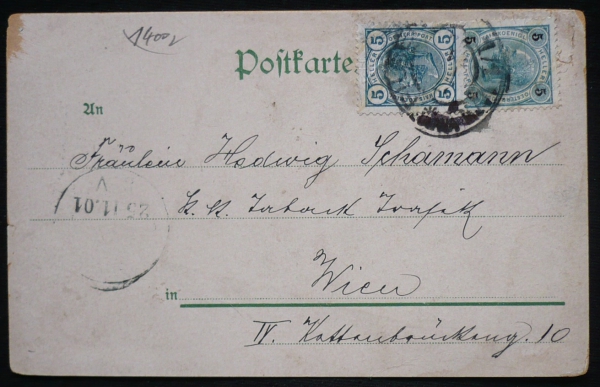 1400
Postkarte
5 5 5
5 5 5
An
Fräulein Hedwig Schamann
25 11.01
k. k. Taback Trafik
Wien
in
IV. Kettenbrückeng. 10